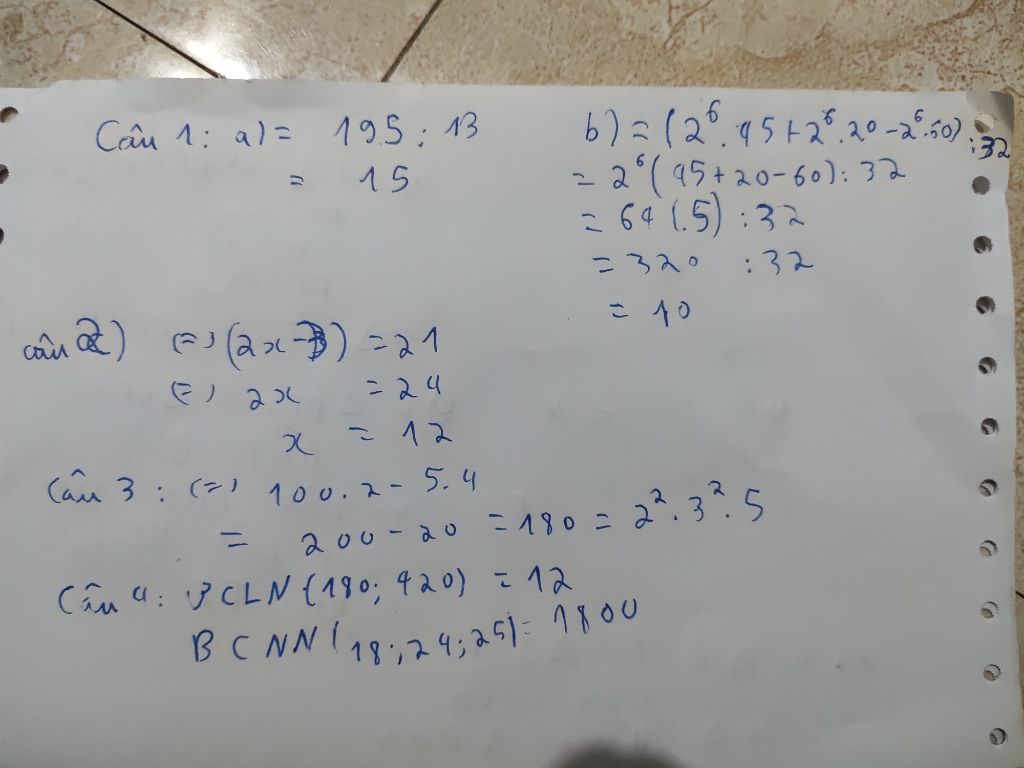 Câu 1: a) = 195 : 13
= 15
b) = (2⁶ . 45 + 2⁶ . 20 - 2⁶ . 60) : 32
= 2⁶ (45 + 20 - 60) : 32
= 64 (.5) : 32
= 320 : 32
= 10
câu 2) (=) (2x - 3) = 21
(=) 2x = 24
x = 12
Câu 3 : (=) 100 . 2 - 5 . 4
= 200 - 20 = 180 = 2² . 3² . 5
Câu 4 : ƯCLN (180 ; 420) = 12
BCNN (18 ; 24 ; 25) = 1800